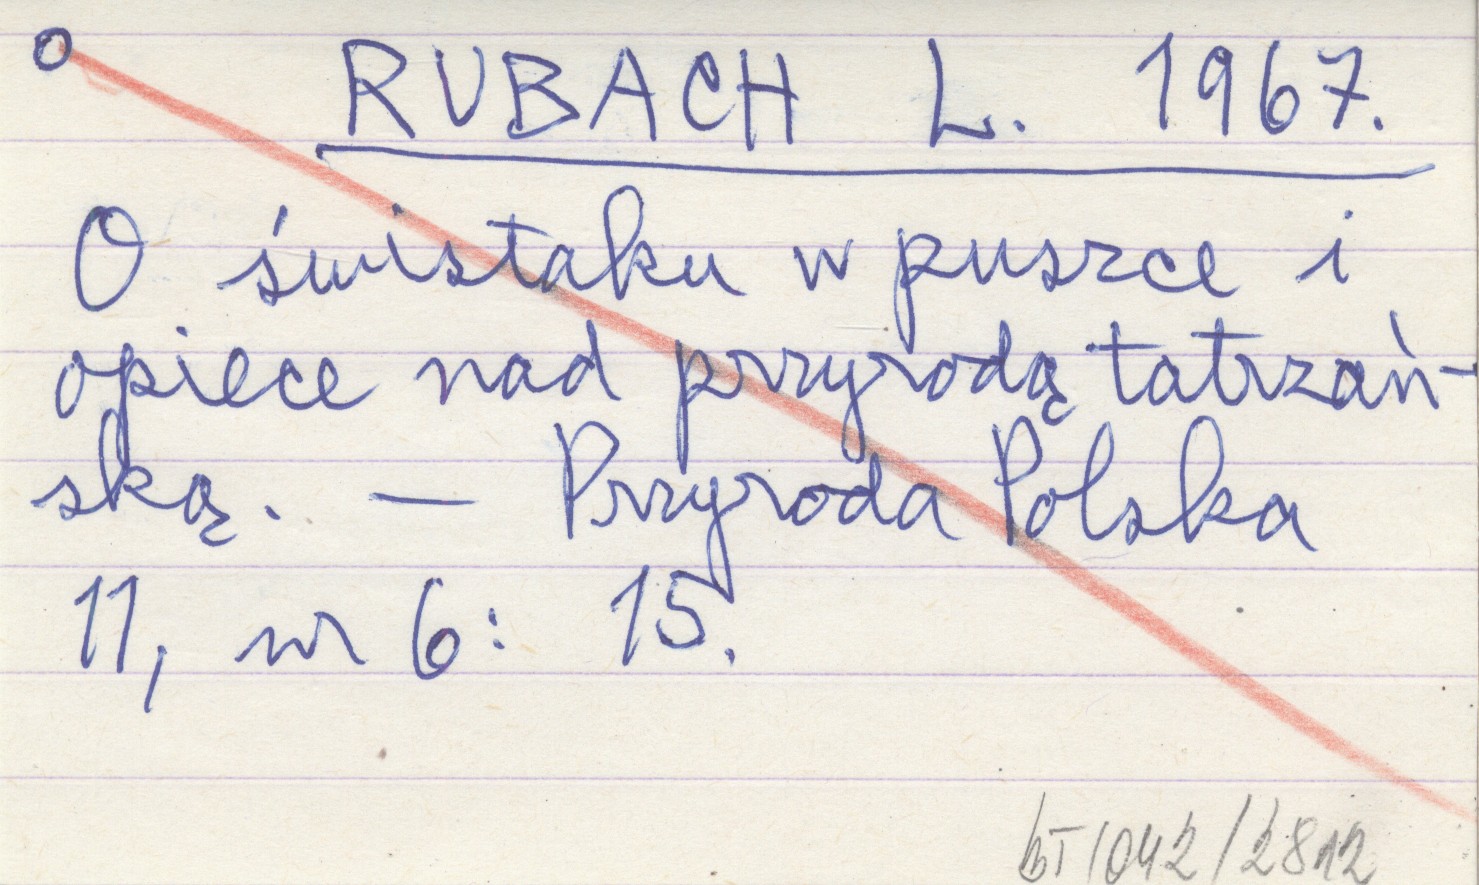 RUBACH L. 1967.
O świstaku w puszce i
opiece nad przyrodą tatrzań-
ską. — Przyroda Polska
11, nr 6: 15.
BT/042/2812